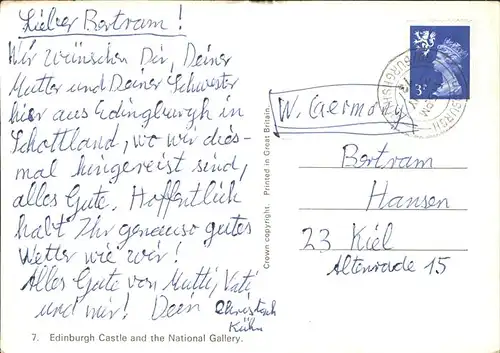 Lieber Bertram!
Wir wünschen Dir, Deiner
Mutter und Deiner Schwester
hier aus Edingburgh in
Schottland, wo wir dies-
mal hingereist sind,
alles Gute. Hoffentlich
habt Ihr genauso gutes
Wetter wie wir!
Alles Gute von Mutti, Vati
und mir! Dein Christoph
Kühn
7. Edinburgh Castle and the National Gallery.
Crown copyright. Printed in Great Britain.
3P
W. Germany
Bertram
Hansen
23 Kiel
Altenrade 15